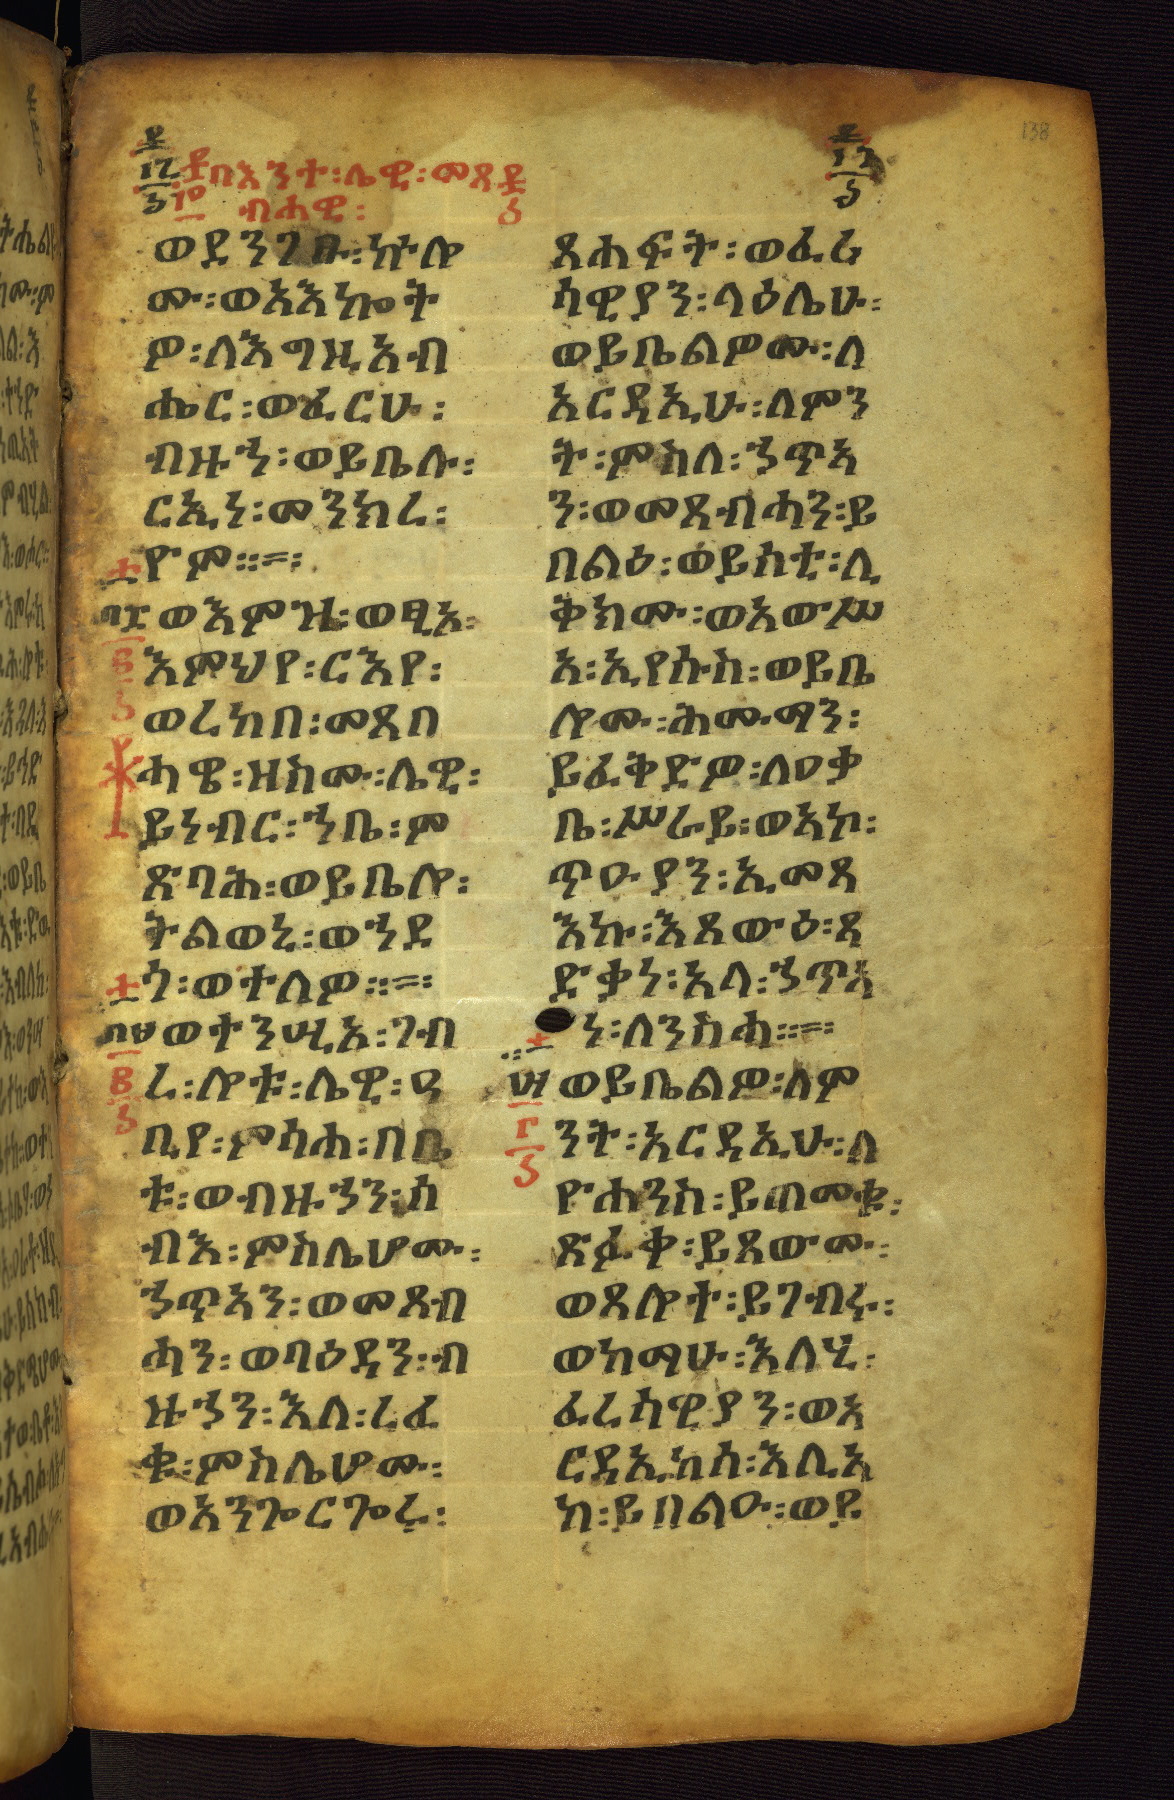 138
በእንተ፡ሌዊ፡መጸ
ብሓዊ፡
ወደንገፁ፡ኵሎ
ሙ፡ወአእኰት
ዎ፡ለእግዚአብ
ሔር፡ወፈርሁ፡
ብዙኅ፡ወይቤሉ፡
ርኢነ፡መንክረ፡
ዮም።=፡
ወእምዝ፡ወፂአ፡
እምህየ፡ርእየ፡
ወረከበ፡መጸበ
ሓዌ፡ዘስሙ፡ሌዊ፡
ይነብር፡ኀቤ፡ም
ጽባሕ፡ወይቤሎ፡
ትልወኒ፡ወኀደ
ጎ፡ወተለዎ።=፡
ወተንሢአ፡ገብ
ረ፡ሎቱ፡ሌዊ፡ዓ
ቢየ፡ምሳሐ፡በቤ
ቱ፡ወብዙኃን፡ሰ
ብእ፡ምስሌሆሙ፡
ኃጥኣን፡ወመጸብ
ሓን፡ወባዕዳን፡ብ
ዙኃን፡እለ፡ረፈ
ቁ፡ምስሌሆሙ፡
ወአንጐርጐሩ፡
ጸሐፍት፡ወፈሪ
ሳዊያን፡ላዕሌሁ፡
ወይቤልዎሙ፡ለ
አርዳኢሁ፡ለምን
ት፡ምስለ፡ኃጥኣ
ን፡ወመጸብሓን፡ይ
በልዕ፡ወይሰቲ፡ሊ
ቅክሙ፡ወአውሥ
አ፡ኢየሱስ፡ወይቤ
ሎሙ፡ሕሙማን፡
ይፈቅድዎ፡ለዐቃ
ቤ፡ሥራይ፡ወአኮ፡
ጥዑያን፡ኢመጻ
እኩ፡እጸውዕ፡ጻ
ድቃነ፡አላ፡ኃጥኣ
ነ፡ለንስሓ።=፡
ወይቤልዎ፡ለም
ንት፡አርዳኢሁ፡ለ
ዮሐንስ፡ይጠመቁ፡
ጽፉቀ፡ይጸውሙ፡
ወጸሎተ፡ይገብሩ፡
ወከማሁ፡እለሂ፡
ፈሪሳዊያን፡ወአ
ርዳኢከሰ፡እሊአ
ከ፡ይበልዑ፡ወይ